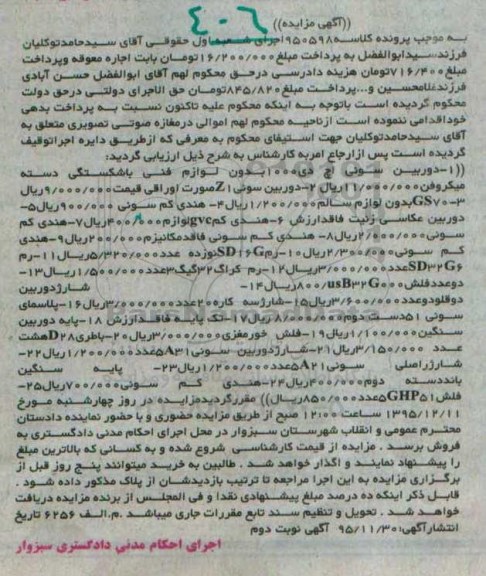 ((آگهی مزایده))
۴۰۶
به موجب پرونده کلاسه ۹۵۰۵۹۸ اجرای شعبه اول حقوقی آقای سیدحامدتوکلیان
فرزندسیدابوالفضل به پرداخت مبلغ ۱۶/۲۰۰/۰۰۰ تومان بابت اجاره معوقه وپرداخت
مبلغ ۷۱۶/۴۰۰ تومان هزینه دادرسی درحق محکوم لهم آقای ابوالفضل حسن آبادی
فرزندغلامحسین و...پرداخت مبلغ ۸۴۵/۸۲۰ تومان حق الاجرای دولتی درحق دولت
محکوم گردیده است باتوجه به اینکه محکوم علیه تاکنون نسبت به پرداخت بدهی
خوداقدامی ننموده است ازناحیه محکوم لهم اموالی درمغازه صوتی تصویری متعلق به
آقای سیدحامدتوکلیان جهت استیفای محکوم به معرفی که ازطریق دایره اجراتوقیف
گردیده است پس ازارجاع امربه کارشناس به شرح ذیل ارزیابی گردید:
((۱-دوربین سونی اچ دی ۱۰۰۰ بدون لوازم فنی باشکستگی دسته
میکروفن ۱۱/۰۰۰/۰۰۰ریال ۲-دوربین سونی Z۱ صورت اوراقی قیمت ۹/۰۰۰/۰۰۰ریال
۳-GS۷۰ بدون لوازم سالم ۱/۲۰۰/۰۰۰ریال ۴- هندی کم سونی ۹۰۰/۰۰۰ریال ۵-
دوربین عکاسی زنیت فاقدارزش ۶-هندی کم gvc لوازم ۴۰۰/۰۰۰ریال ۷-هندی کم
سونی ۲/۰۰۰/۰۰۰ریال ۸- هندی کم سونی فاقدمکانیزم ۲۰۰/۰۰۰ریال ۹-هندی
کم سونی ۲/۳۰۰/۰۰۰ریال ۱۰-رم SD۱۶G نوزده عدد ۵/۳۲۰/۰۰۰ریال ۱۱-رم
SD۳۲G۶ عدد ۳/۰۰۰/۰۰۰ریال ۱۲-رم کراگ ۳۲گیگ ۳عدد ۱/۵۰۰/۰۰۰ریال ۱۳-
دوعددفلش usB۳۲G ۸۰۰/۰۰۰ریال ۱۴- شارژدوربین
دوقلودوعدد ۳/۶۰۰/۰۰۰ریال ۱۵-شارژسه کاره ۲۰عدد ۳/۰۰۰/۰۰۰ریال ۱۶-پلاسمای
سونی ۵۱ دست دوم ۸/۰۰۰/۰۰۰ریال ۱۷-تک پایه فاقدارزش ۱۸-پایه دوربین
سنگین ۱/۱۰۰/۰۰۰ریال ۱۹-فلش خورمغزی ۳/۰۰۰/۰۰۰ریال ۲۰-باطری D۲۸ هشت
عدد ۳/۱۵۰/۰۰۰ریال ۲۱-شارژدوربین سونی A۳۱ ۵عدد ۱/۲۰۰/۰۰۰ریال ۲۲-
شارژراصلی سونی A۲۱ ۵عدد ۱/۲۰۰/۰۰۰ریال ۲۳- پایه سنگین
بانددسته دوم ۴۰۰/۰۰۰ریال ۲۴-هندی کم سونی ۷۰۰/۰۰۰ریال ۲۵-
فلش GHP۵۱ ۵عدد ۸۵۰/۰۰۰ریال)) مقررگردیدمزایده در روز چهارشنبه مورخ
۱۳۹۵/۱۲/۱۱ ساعت ۱۲:۰۰ صبح از طریق مزایده حضوری و با حضور نماینده دادستان
محترم عمومی و انقلاب شهرستان سبزوار در محل اجرای احکام مدنی دادگستری به
فروش برسد . مزایده از قیمت کارشناسی شروع شده و به کسانی که بالاترین مبلغ
را پیشنهاد نمایند و اگذار خواهد شد . طالبین به خرید میتوانند پنج روز قبل از
برگزاری مزایده به این اجرا مراجعه تا ترتیب بازدیدشان از پلاک مذکور داده شود .
قابل ذکر اینکه ده درصد مبلغ پیشنهادی نقدا و فی المجلس از برنده مزایده دریافت
خواهد شد . تحویل و تنظیم سند تابع مقررات جاری میباشد .م.الف ۶۲۵۶ تاریخ
انتشارآگهی:۹۵/۱۱/۳۰ آگهی نوبت دوم
اجرای احکام مدنی دادگستری سبزوار